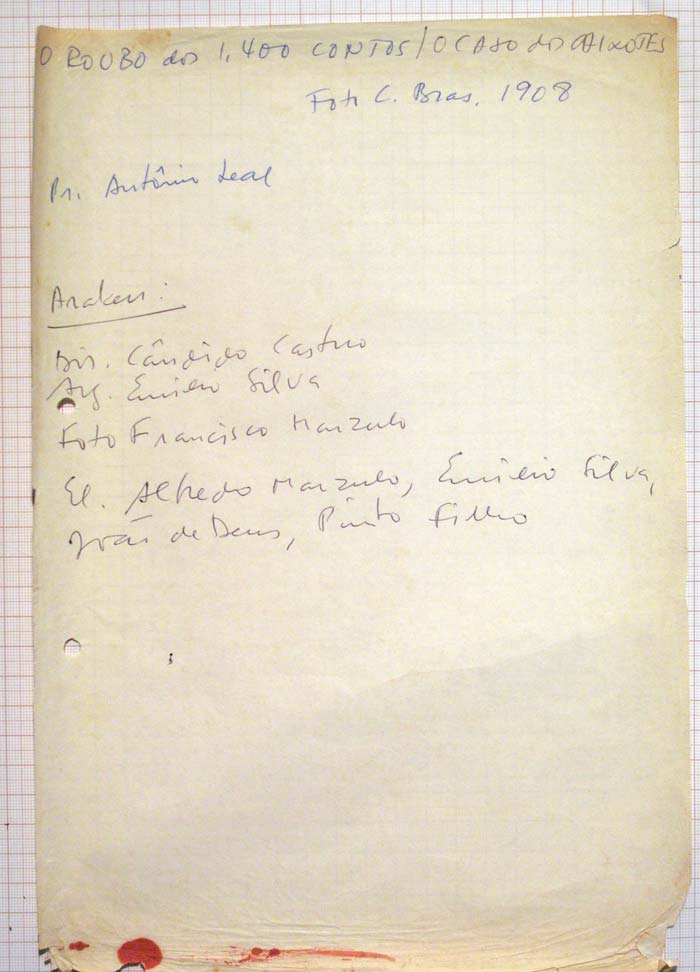 O ROUBO dos 1.400 CONTOS / O CASO dos CAIXOTES
Foto C. Bras. 1908
Pr. Antônio Leal
Araken:
Dir. Cândido Castro
Arg. Emilio Silva
Foto Francisco Marzulo
El. Alfredo Marzulo, Emilio Silva,
João de Deus, Pinto Filho